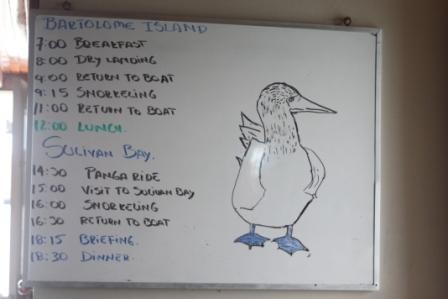 BARTOLOME ISLAND
7:00 BREAKFAST
8:00 DRY LANDING
9:00 RETURN TO BOAT
9:15 SNORKELING
11:00 RETURN TO BOAT
12:00 LUNCH.
SULIVAN BAY.
14:30 PANGA RIDE
15:00 VISIT TO SULIVAN BAY
16:00 SNORKELING
16:30 RETURN TO BOAT
18:15 BRIEFING.
18:30 DINNER.